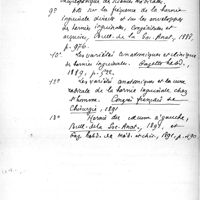 9° Note sur la fréquence de la hernie
inguinale directe et sur les enveloppes
des hernies inguinales, congénitales et
acquises, Bull. de la Soc. Anat., 1888,
p. 976.
10° Les variétés anatomiques et cliniques
des hernies inguinales. Gazette hebd.,
1889, p.
Les variétés anatomiques et la cure
radicale de la hernie inguinale chez
l'homme. Congrès français de
Chirurgie, 1891
Hernie du cæcum à gauche,
Bull. de la Soc. Anat., 1891, et
Gaz. hebd. de méd. et chir., 1891, p. 490.